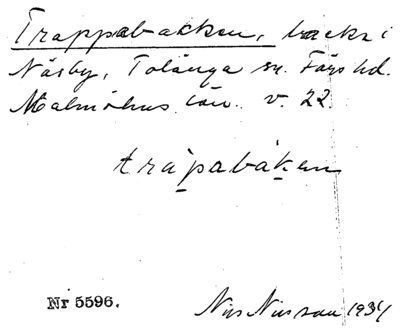 Trappabacken, backe i
Näsby, Tolånga sn. Färs hd.
Malmöhus län. v. 22.
trapabaken
Nr 5596.
Nils Nilsson 1934